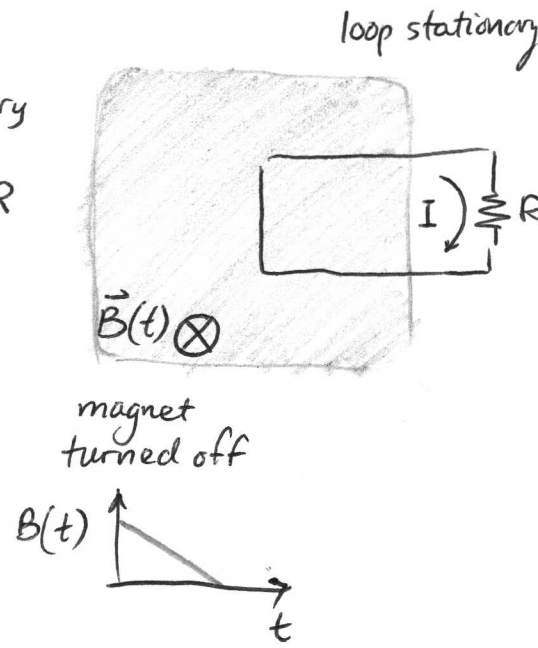 loop stationary
ry
R
I
R
B(t) ⊗
magnet
turned off
B(t)
t